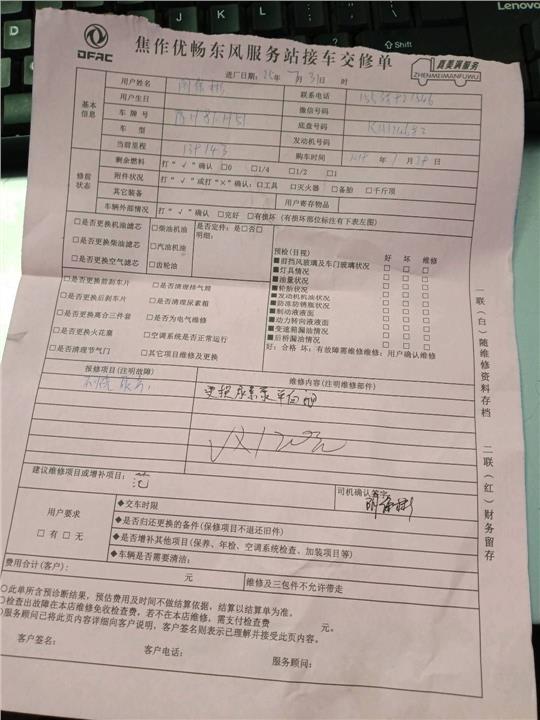 Lenovo
Shift
DFAC
焦作优畅东风服务站接车交修单
真美满服务
ZHENMEIMANFUWU
进厂日期： 年 月31日 时
基本信息
用户姓名
联系电话
用户生日
微信号码
车牌号
底盘号码
车型
发动机号码
当前里程
购车时间 年 月 日
修前状态
剩余燃料 打“√”确认 □0 □1/4 □1/2 □1
附件状况 打“√”或打“×”确认：□工具 □灭火器 □备胎 □千斤顶
其它装备 用户寄存物品
车辆外部情况 打“√”确认 □完好 □有损坏（有损坏部位标注有下表左图）
□是否更换机油滤芯 □柴油机油 是否定件：是□否□
□是否更换柴油滤芯 □汽油机油 明细：
□是否更换空气滤芯 □齿轮油
□是否更换前刹车片 □是否清理排气筒
□是否更换后刹车片 □是否清理尿素箱
□是否更换离合三件套 □是否为电气维修
□是否更换火花塞 □空调系统是否正常运行
□是否清理节气门 □其它项目维修及更换
预检(目视) 好 坏 维修
■前挡风玻璃及车门玻璃状况 □ □ □
■灯具情况 □ □ □
■油量状况 □ □ □
■轮胎状况 □ □ □
■发动机机油状况 □ □ □
■防冻防锈瓶状况 □ □ □
■制动液液面 □ □ □
■动力转向液液面 □ □ □
■变速箱漏油情况 □ □ □
■后桥漏油情况 □ □ □
好：合格 坏：有故障需维修维修：用户确认维修
报修项目(注明故障)
维修内容(注明维修部件)
更换尿素泵单向阀
建议维修项目或增补项目：
司机确认签字：
用户要求
□有 □无
◆交车时限
◆是否归还更换的备件(保修项目不退还旧件)
◆是否增补其他项目(保养、年检、空调系统检查、加装项目等)
◆车辆是否需要清洁：
费用合计(客户)： 元 维修及三包件不允许带走
○此单所含预诊断结果，预估费用及时间不做结算依据，结算以结算单为准。
○检查出故障在本店维修免收检查费，若不在本店维修，需支付检查费 元。
○服务顾问已将此页内容详细向客户说明，客户签名则表示已理解并接受此页内容。
客户签名： 客户电话： 服务顾问：
一联(白)随维修资料存档 二联(红)财务留存